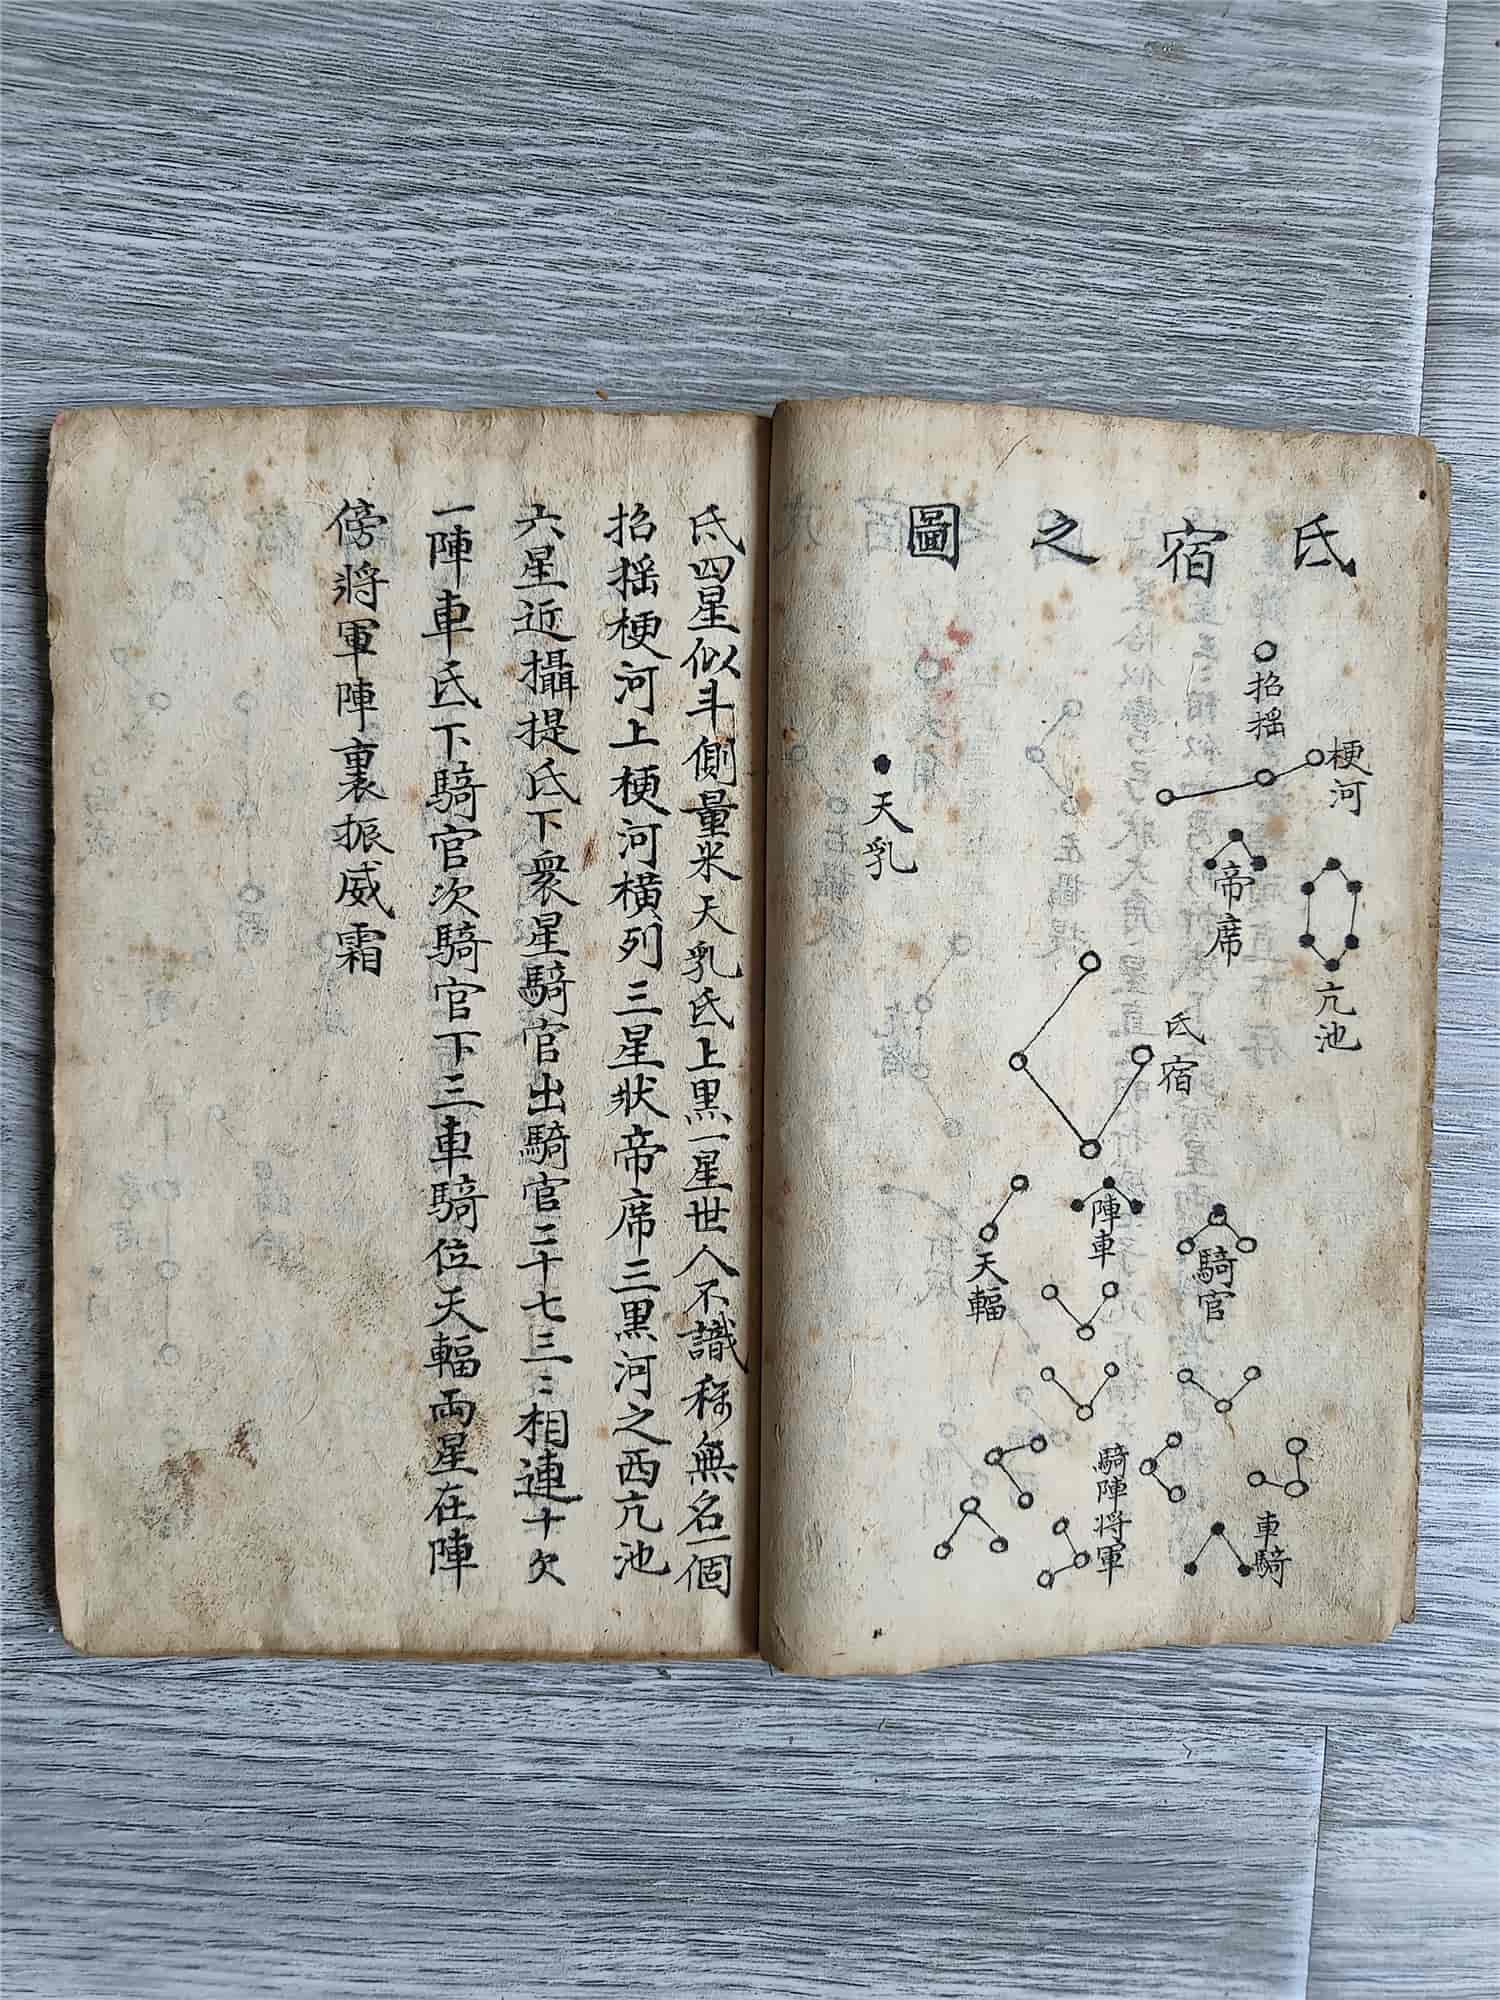 氐宿之圖
招揺
梗河
帝席
亢池
天乳
氐宿
陣車
騎官
天輻
騎陣將軍
車騎
氐四星似斗側量米天乳氐上黒一星世人不識称無名一個
招揺梗河上梗河横列三星状帝席三黒河之西亢池
六星近攝提氐下衆星騎官出騎官二十七三〻相連十欠
一陣車氐下騎官次騎官下三車騎位天輻両星在陣
傍將軍陣裏振威霜